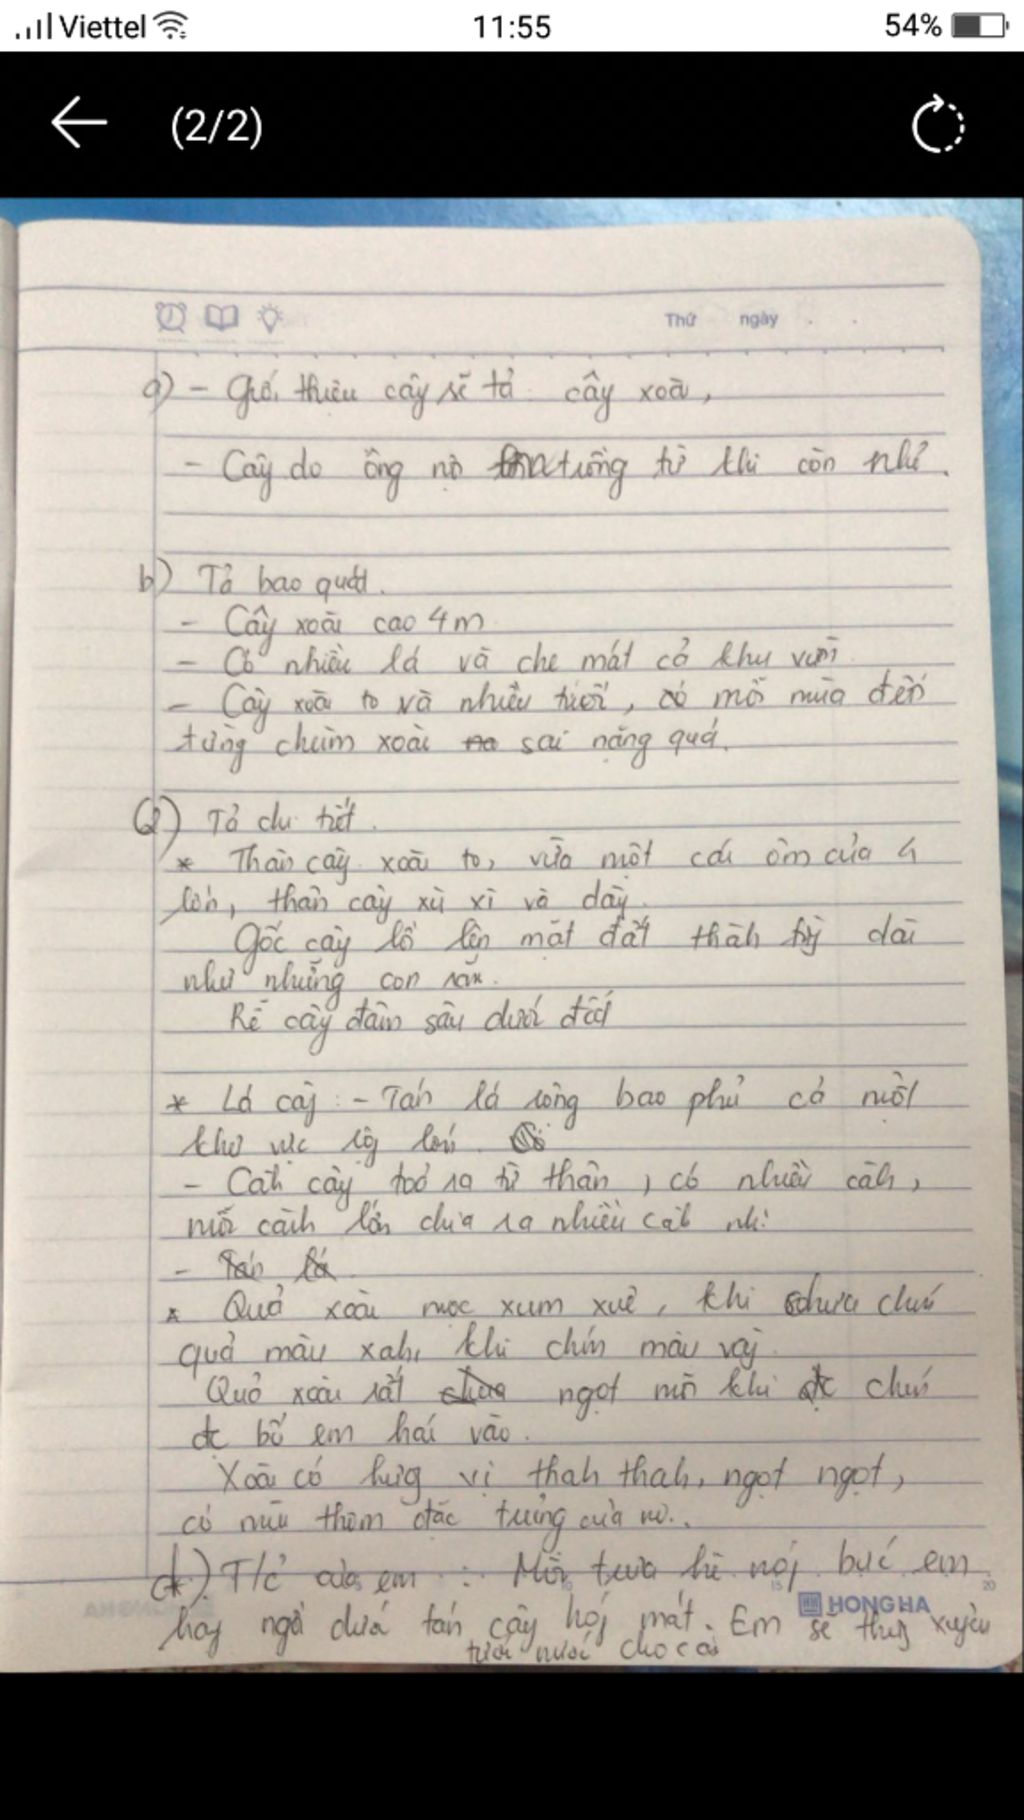 Viettel 11:55 54%
(2/2)
Thứ ngày
a) - Giới thiệu cây sẽ tả: cây xoài,
- Cây do ông nội trồng từ khi còn nhỏ.
b) Tả bao quát.
- Cây xoài cao 4m
- Có nhiều lá và che mát cả khu vườn
- Cây xoài to và nhiều tuổi, cứ mỗi mùa đến
từng chùm xoài sai nặng quả.
c) Tả chi tiết.
* Thân cây xoài to, vừa một cái ôm của
lớn, thân cây xù xì và dày.
Gốc cây lồi lên mặt đất thành dài
như những con rắn.
Rễ cây đâm sâu dưới đất
* Lá cây: - Tán lá rộng bao phủ cả một
khu vực rộng lớn.
- Cành cây toả ra từ thân, có nhiều cành,
mỗi cành lớn chia ra nhiều cành nhỏ
- Tán lá
* Quả xoài mọc xum xuê, khi chưa chín
quả màu xanh, khi chín màu vàng.
Quả xoài rất ngọt mỗi khi đc chín
đc bố em hái vào.
Xoài có hương vị thanh thanh, ngọt ngọt,
có mùi thơm đặc trưng của nó..
d) T/c của em: Mỗi trưa hè nóng bức em
HONG HA
hay ngồi dưới tán cây hóng mát. Em sẽ thường xuyên
tưới nước cho cây